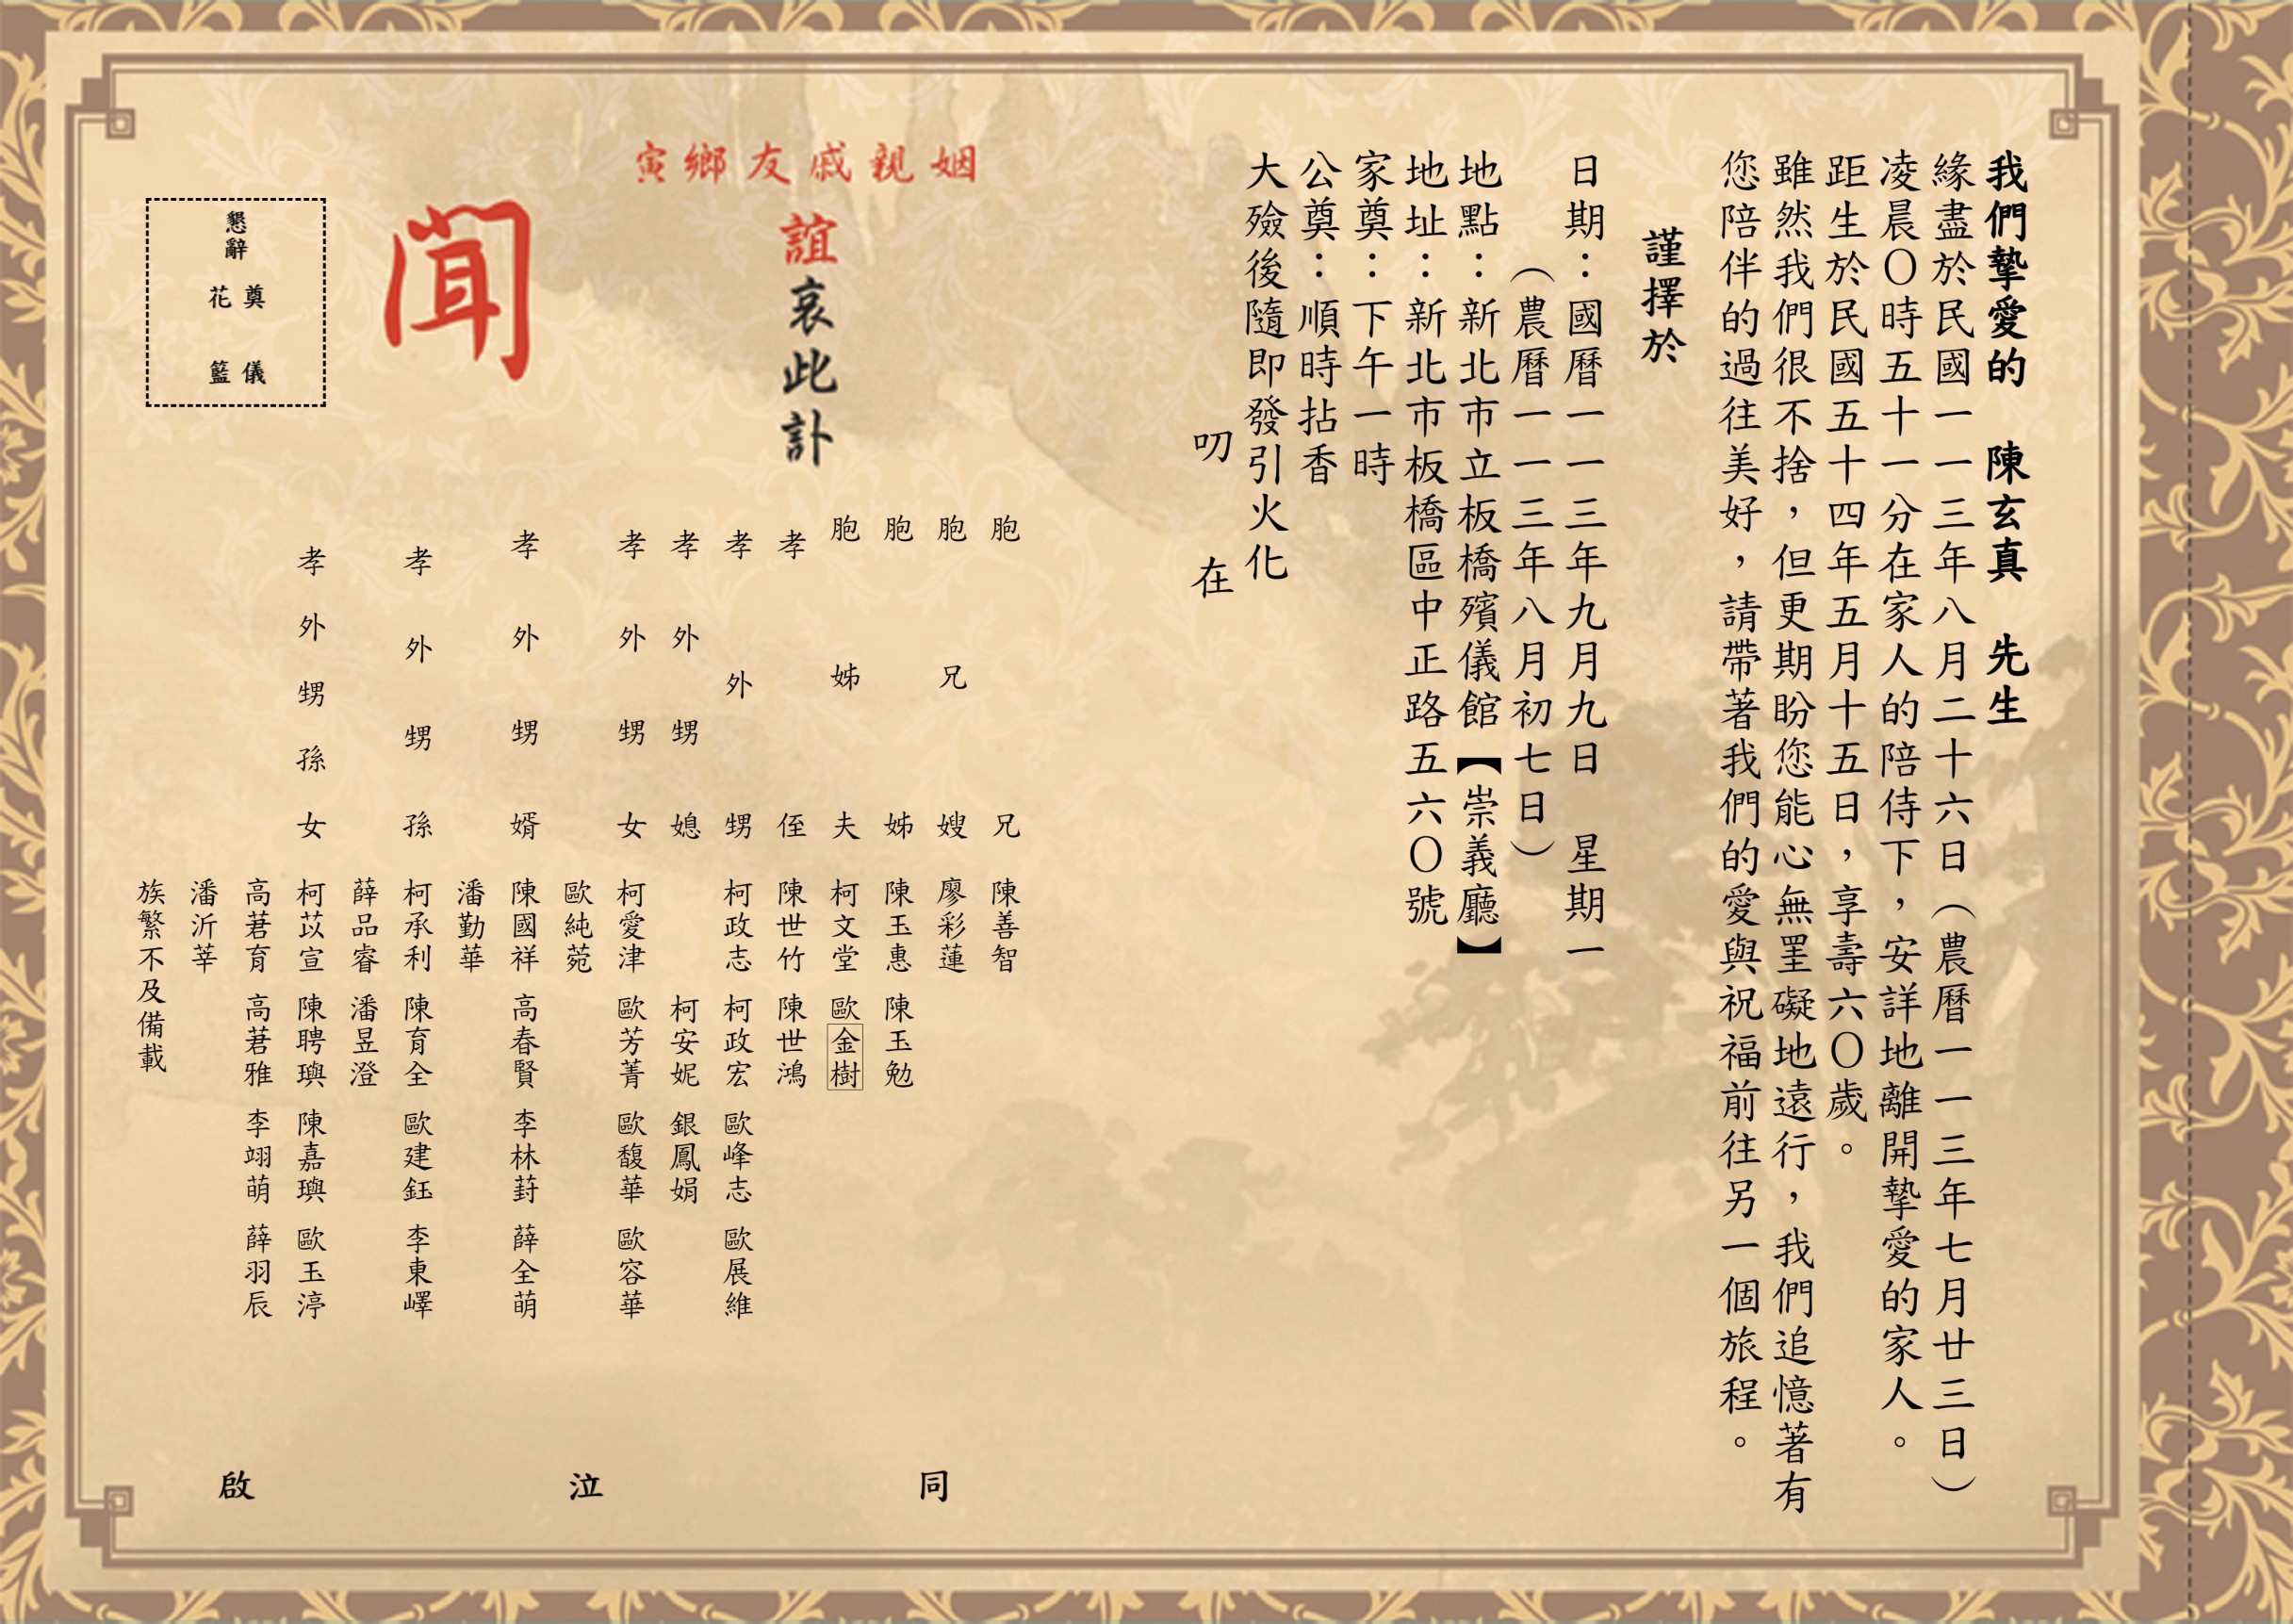 我們摯愛的　陳玄真　先生
緣盡於民國一一三年八月二十六日（農曆一一三年七月廿三日）
凌晨〇時五十一分在家人的陪侍下，安詳地離開摯愛的家人。
距生於民國五十四年五月十五日，享壽六〇歲。
雖然我們很不捨，但更期盼您能心無罣礙地遠行，我們追憶著有
您陪伴的過往美好，請帶著我們的愛與祝福前往另一個旅程。
謹擇於
日期：國曆一一三年九月九日　星期一
（農曆一一三年八月初七日）
地點：新北市立板橋殯儀館【崇義廳】
地址：新北市板橋區中正路五六〇號
家奠：下午一時
公奠：順時拈香
大殮後隨即發引火化
叨　在
姻親戚友鄉寅
誼哀此訃
聞
懇辭　奠儀　花籃
胞兄　陳善智
胞兄嫂　廖彩蓮
胞姊　陳玉惠　陳玉勉
胞姊夫　柯文堂　歐金樹
孝侄　陳世竹　陳世鴻
孝外甥　柯政志　柯政宏　歐峰志　歐展維
孝外甥媳　柯安妮　銀鳳娟
孝外甥女　柯愛津　歐芳菁　歐馥華　歐容華
歐純菀
孝外甥婿　陳國祥　高春賢　李林葑　薛全萌
潘勤華
孝外甥孫　柯承利　陳育全　歐建鈺　李東嶧
薛品睿　潘昱澄
孝外甥孫女　柯苡宣　陳聘璵　陳嘉璵　歐玉渟
高莙育　高莙雅　李翊萌　薛羽辰
潘沂莘
族繁不及備載
同泣啟